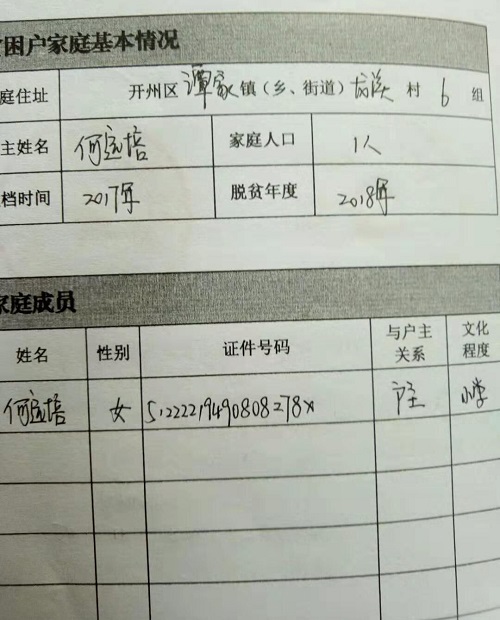 困户家庭基本情况
庭住址 开州区 谭家 镇（乡、街道） 村 6 组
主姓名 何 培 家庭人口 1人
档时间 2017年 脱贫年度 2018年
家庭成员
姓名 性别 证件号码 与户主关系 文化程度
何 培 女 51222219490808278X 户主 小学